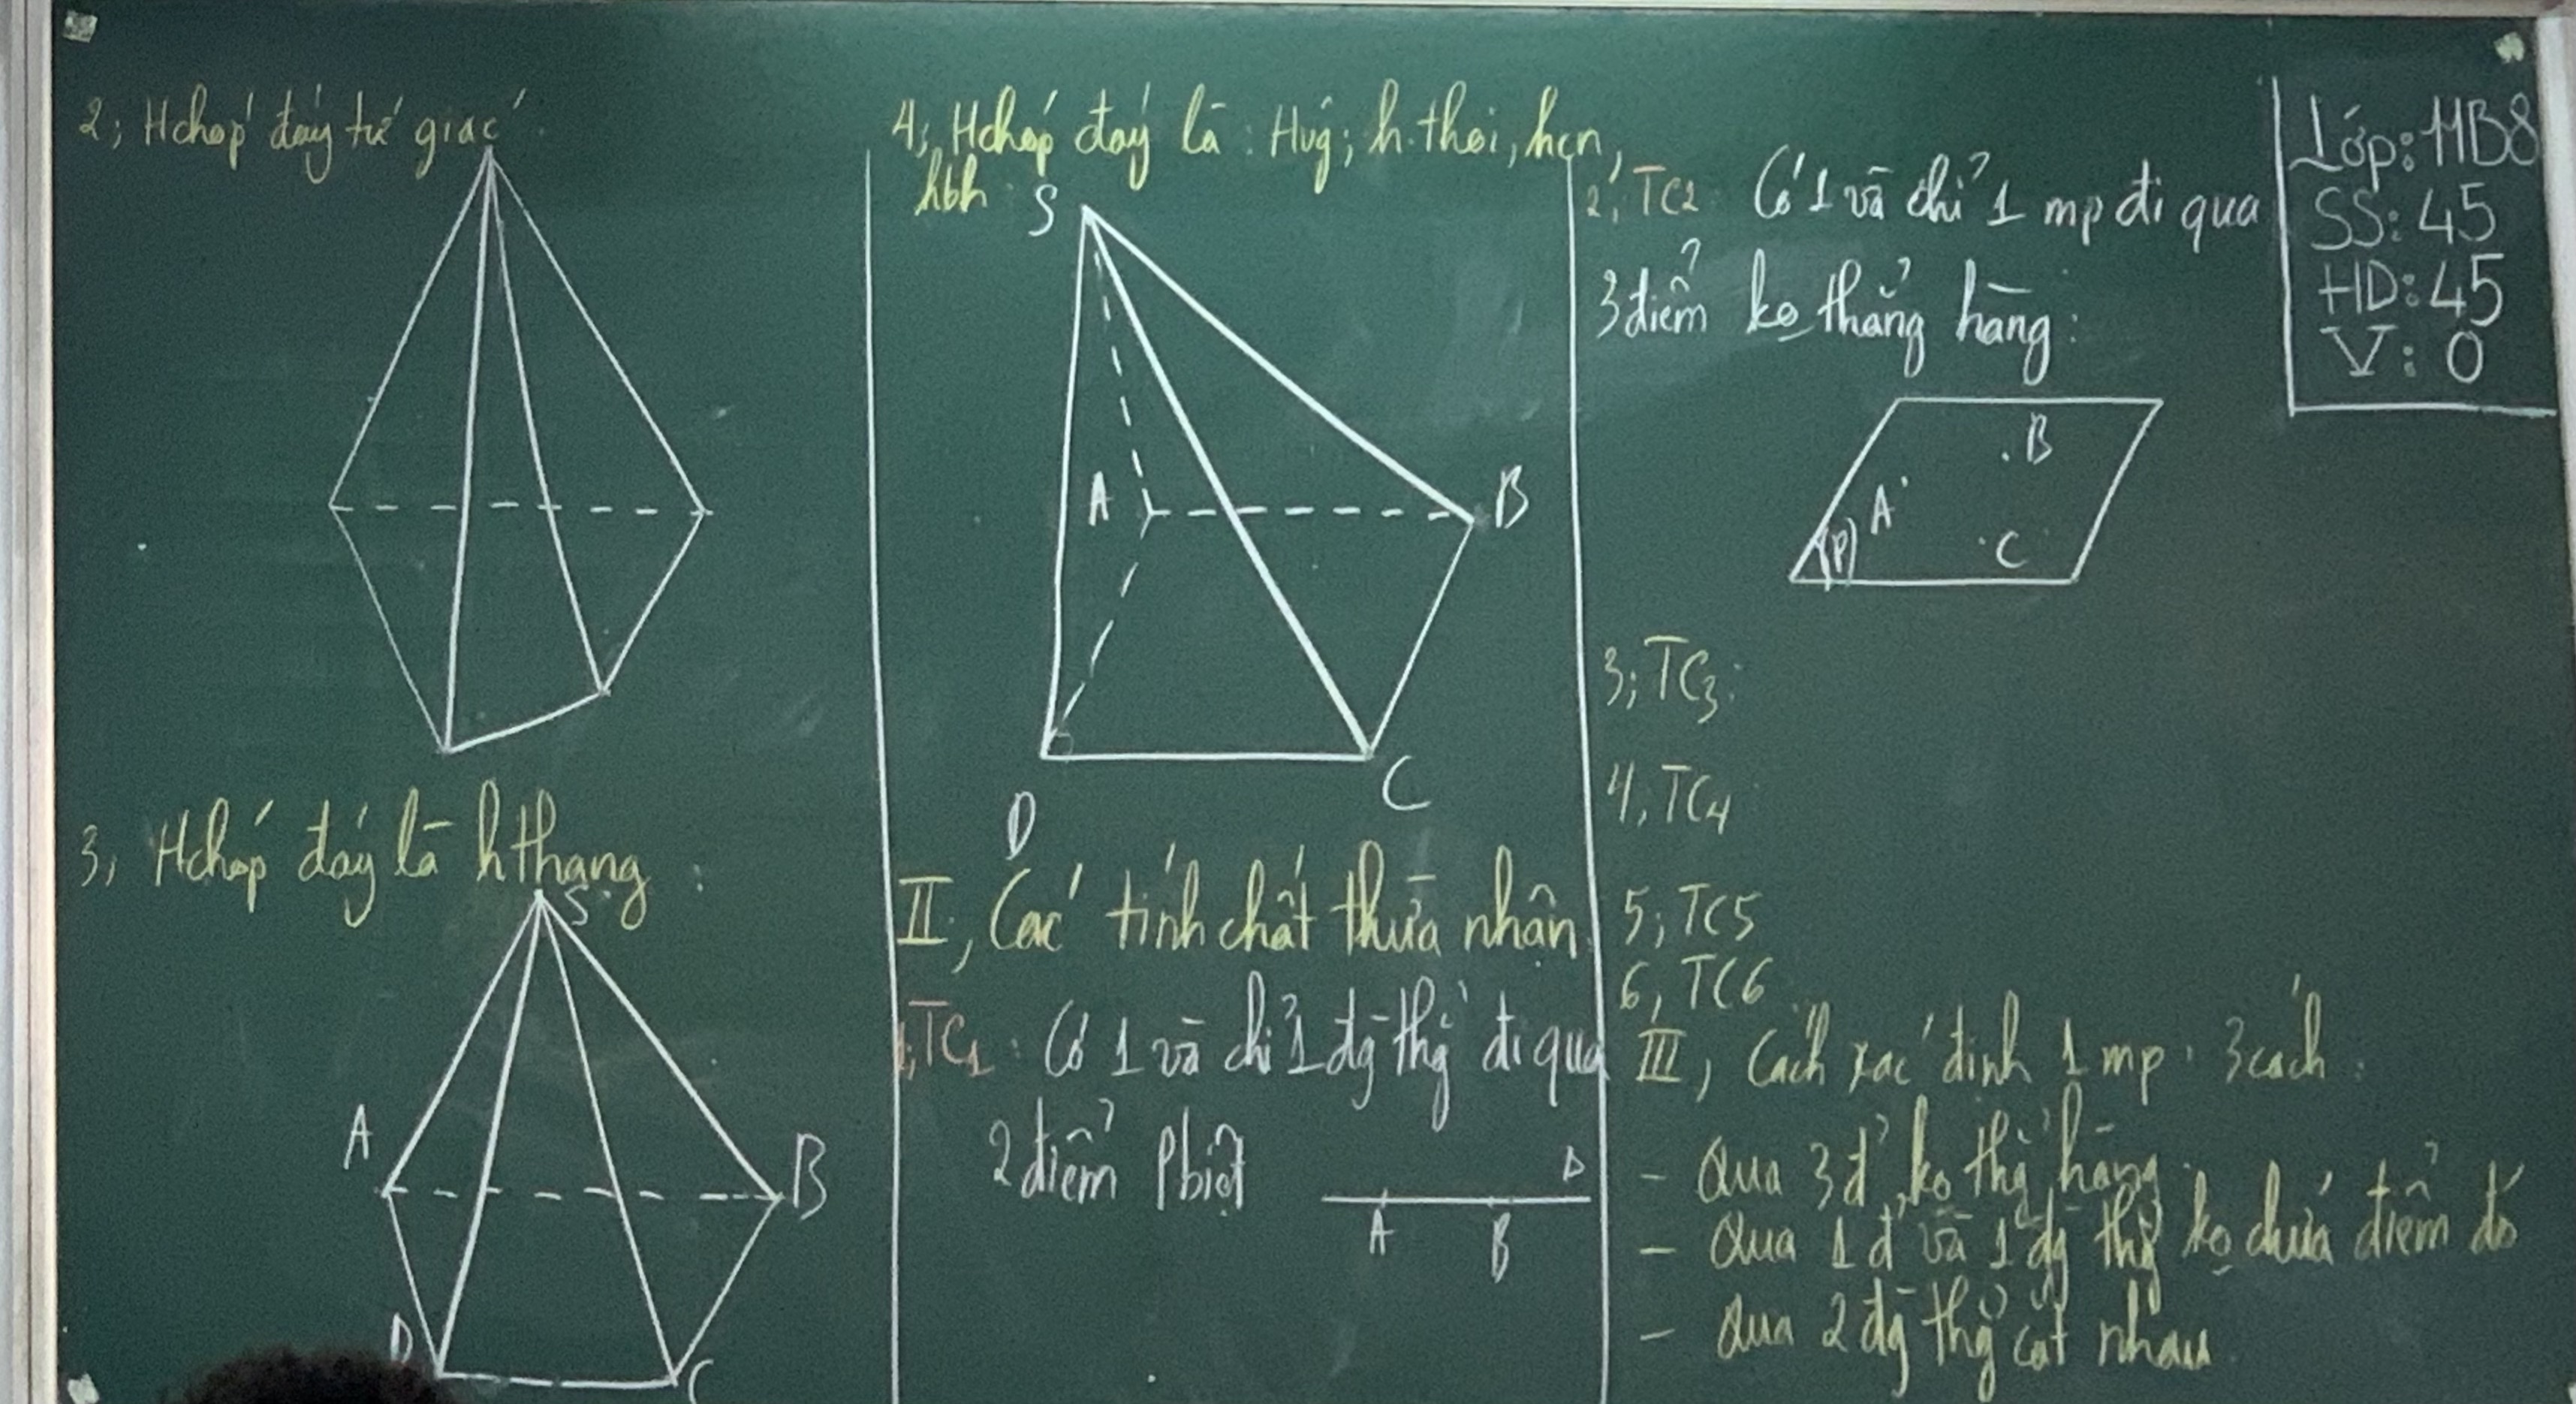 2; Hchóp đáy tứ giác
3, Hchóp đáy là hthang :
S
A
B
D
C
4; Hchóp đáy là : Hvg; h.thoi, hcn,
hbh
S
A
B
D
C
II, Các tính chất thừa nhận
1; TC1 : Có 1 và chỉ 1 đg thg đi qua
2 điểm Pbiệt
A
B
2; TC2 Có 1 và chỉ 1 mp đi qua
3 điểm ko thẳng hàng :
B
A
C
(P)
3; TC3:
4, TC4
5; TC5
6, TC6
III, Cách xác định 1 mp : 3 cách :
- Qua 3 đ' ko thg hàng
- Qua 1 đ' và 1 đg thg ko chứa điểm đó
- Qua 2 đg thg cắt nhau
Lớp: 11B8
SS: 45
HD: 45
V: 0